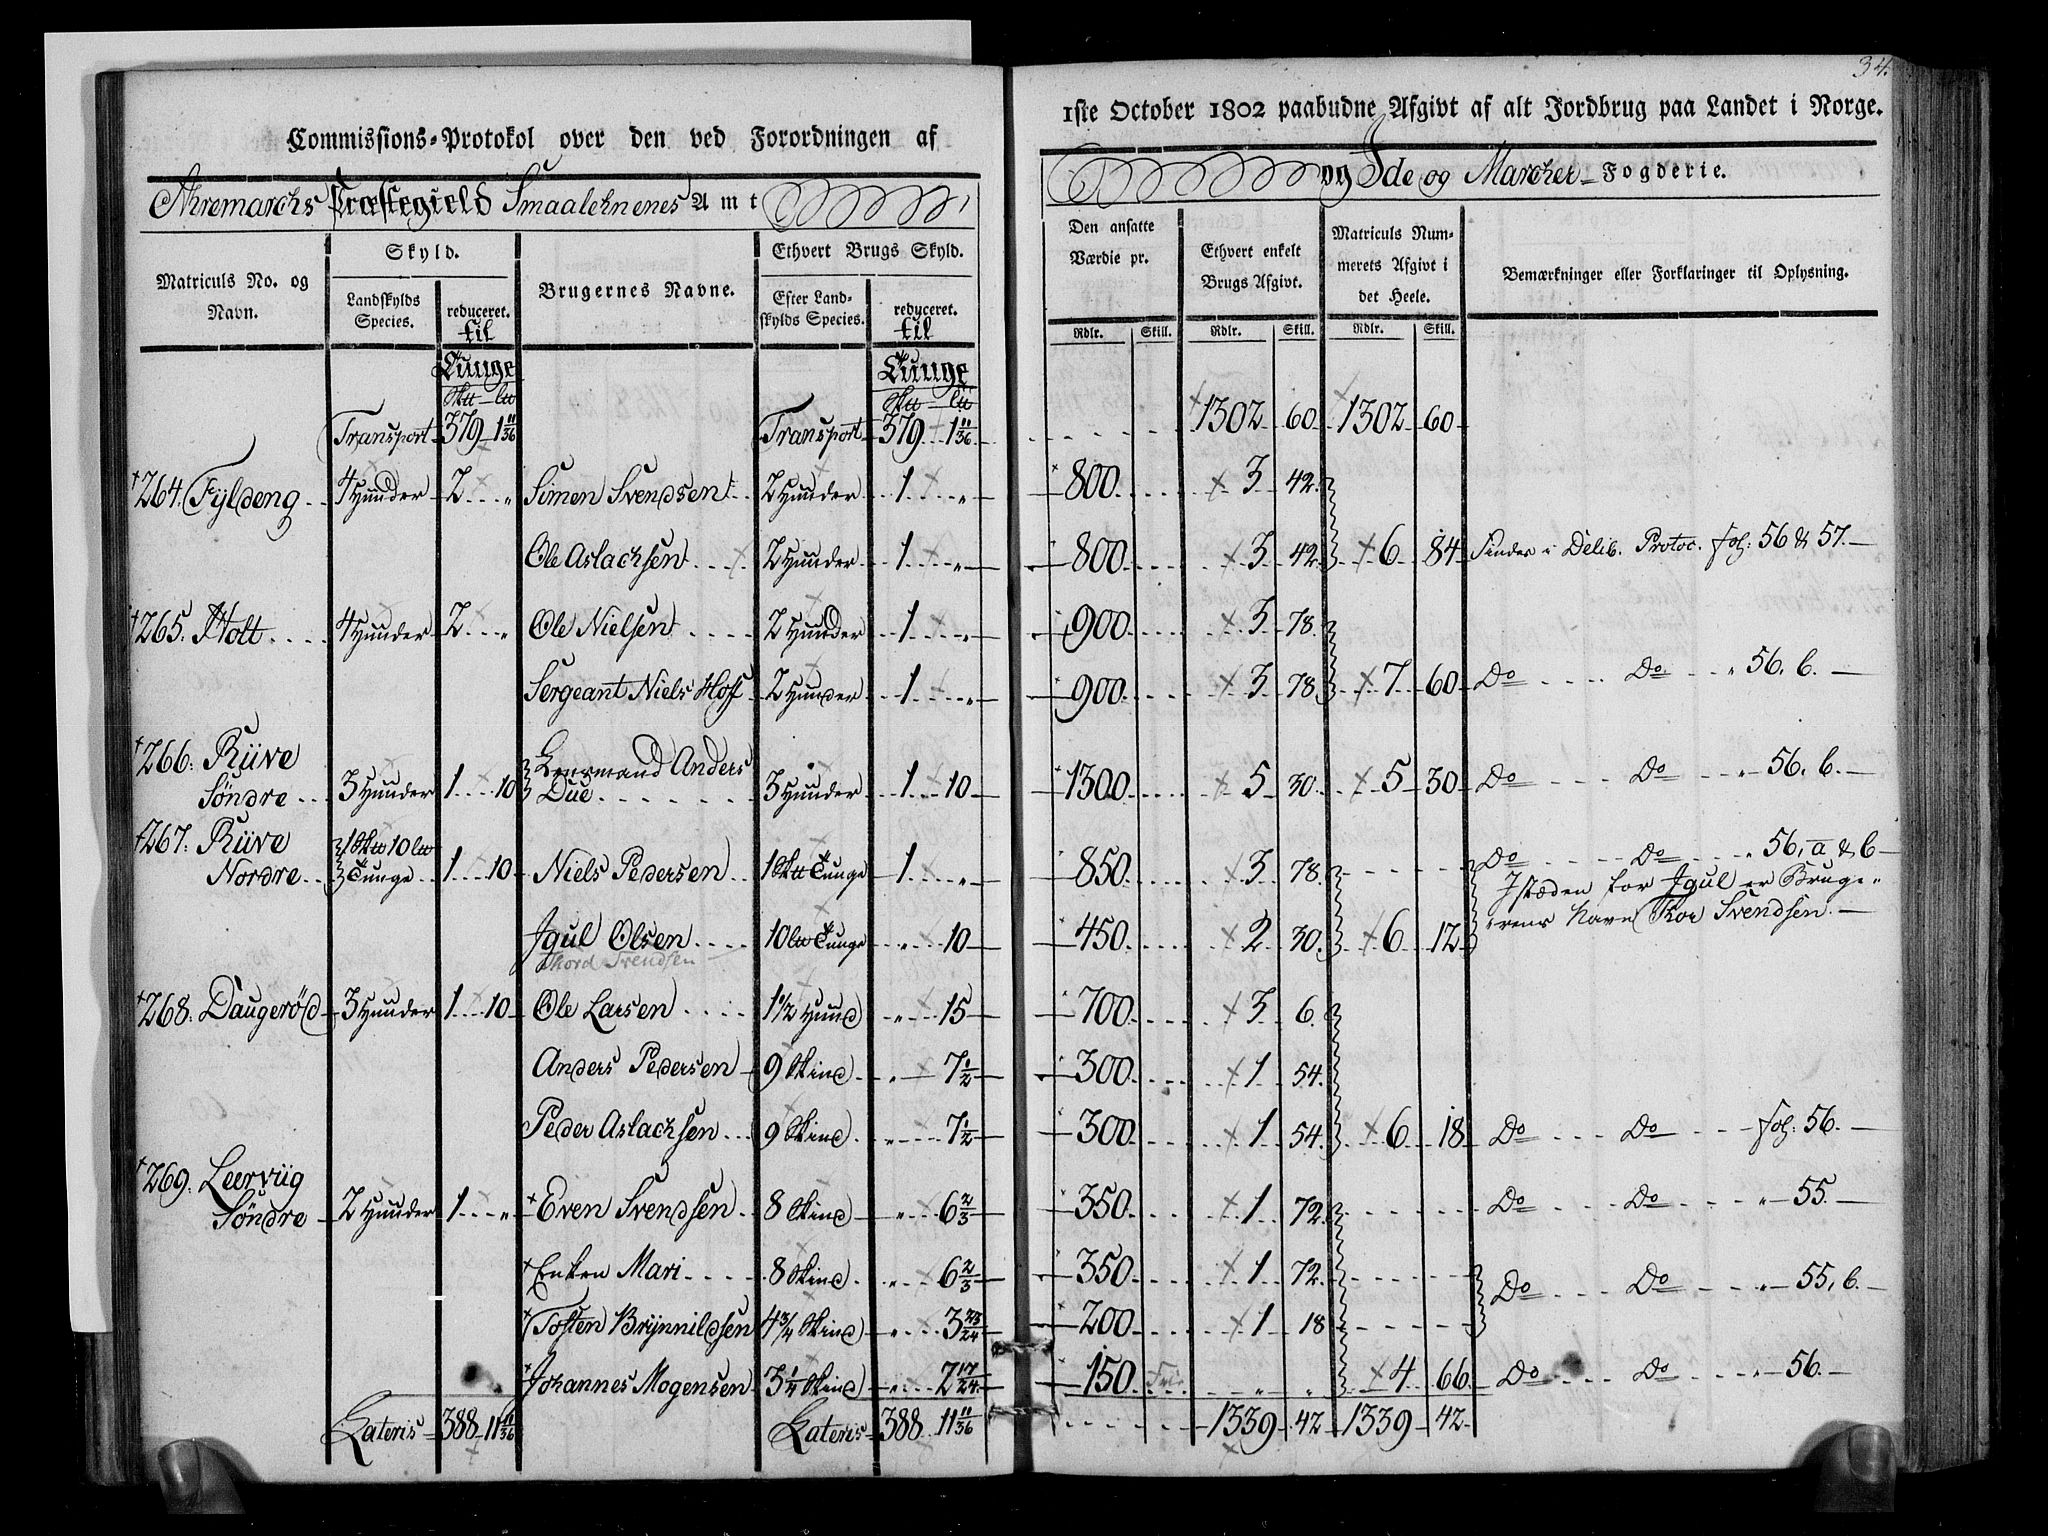 34.
Commissions-Protokol over den ved Forordningen af
1ste October 1802 paabudne Afgivt af alt Jordbrug paa Landet i Norge.
Ahremarchs Præstegield Smaalehnenes Amt
og Ide og Marcker Fogderie.
Matriculs No. og Navn.
Skyld.
Landskylds Species.
reduceret. til
Brugernes Navne.
Ethvert Brugs Skyld.
Efter Landskylds Species.
reduceret. til
Den ansatte Værdie pr.
Ethvert enkelt Brugs Afgivt.
Matriculs Nummerets Afgivt i det Heele.
Bemærkninger eller Forklaringer til Oplysning.
Rdlr. Skill. Rdlr. Skill. Rdlr. Skill.
Tunge Tunge
Transport 379 1 11/36 Transport 379 1 11/36 1302 60 1302 60
264. Fyldeng 4 Hunder 2 " Simen Svendsen 2 Hunder 1 " 800 3 42
Ole Aslachsen 2 Hunder 1 " 800 3 42 6 84 Findes i Delib. Protoc. fol: 56 & 57.
265. Holt 4 Hunder 2 " Ole Nielsen 2 Hunder 1 " 900 3 78
Sergeant Niels Hof 2 Hunder 1 " 900 3 78 7 60 Do Do " 56. b.
266. Rüve Söndre 3 Hunder 1 10 Lensmand Anders Due 3 Hunder 1 10 1300 5 30 5 30 Do Do " 56. b.
267. Rüve Nordre 1 Sktt 10 ltt Tunge 1 10 Niels Pedersen 1 Sktt Tunge 1 " 850 3 78 Do Do " 56, a & b
Istæden for Jgul er Bruge-
rens Navn Thor Svendsen.
Jgul Olsen 10 ltt Tunge " 10 450 2 30 6 12
Thord Svendsen
268. Daugeröd 3 Hunder 1 10 Ole Larsen 1 1/2 Hund " 15 700 3 6
Anders Pedersen 9 Skind " 7 1/2 300 1 54
Peder Aslachsen 9 Skind " 7 1/2 300 1 54 6 18 Do Do fol: 56.
269. Leerviig Söndre 2 Hunder 1 " Even Svendsen 8 Skind " 6 2/3 350 1 72 Do Do " 55.
Enken Mari 8 Skind " 6 2/3 350 1 72 Do Do " 55, b.
Tosten Brÿnnildsen 4 3/4 Skind " 3 23/24 200 1 18
Johannes Mogensen 3 1/4 Skind " 2 17/24 150 Frie " " 4 66 Do Do " 56.
Lateris 388 11 11/36 Lateris 388 11 11/36 1339 42 1339 42